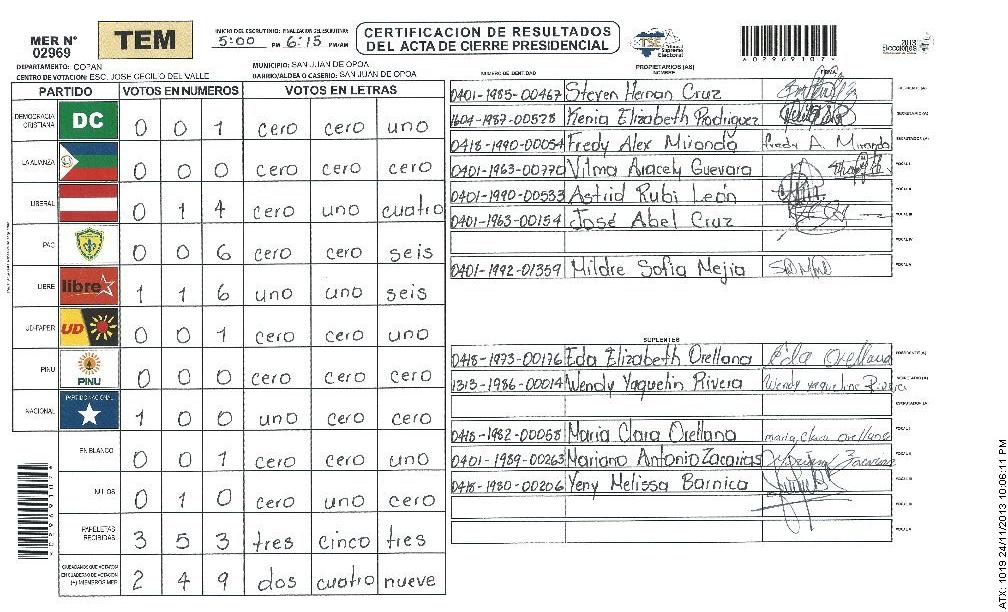 MER N° 02969
TEM
INICIO DEL ESCRUTINIO: FINALIZACION DEL ESCRUTINIO:
5:00 PM 6:15 PM/AM
CERTIFICACION DE RESULTADOS
DEL ACTA DE CIERRE PRESIDENCIAL
TSE Tribunal Supremo Electoral
02969107
2013 Elecciones
DEPARTAMENTO: COPAN
MUNICIPIO: SAN JUAN DE OPOA
CENTRO DE VOTACION: ESC. JOSE CECILIO DEL VALLE
BARRIO/ALDEA O CASERIO: SAN JUAN DE OPOA
PARTIDO VOTOS EN NUMEROS VOTOS EN LETRAS
DEMOCRACIA CRISTIANA DC 0 0 1 cero cero uno
LA ALIANZA 0 0 0 cero cero cero
LIBERAL 0 1 4 cero uno cuatro
PAC 0 0 6 cero cero seis
LIBRE libre 1 1 6 uno uno seis
UD-FAPER UD 0 0 1 cero cero uno
PINU PINU 0 0 0 cero cero cero
NACIONAL PARTIDO NACIONAL 1 0 0 uno cero cero
EN BLANCO 0 0 1 cero cero uno
NULOS 0 1 0 cero uno cero
PAPELETAS RECIBIDAS 3 5 3 tres cinco tres
CIUDADANOS QUE VOTARON EN CUADERNO DE VOTACION (+) MIEMBROS MER 2 4 9 dos cuatro nueve
NUMERO DE IDENTIDAD PROPIETARIOS (AS) NOMBRE
0401-1985-00467 Steven Hernan Cruz PRESIDENTE (A)
1604-1987-00528 Kenia Elizabeth Rodriguez SECRETARIO (A)
0418-1990-00054 Fredy Alex Miranda Fredy A. Miranda ESCRUTADOR (A)
0401-1963-00770 Vilma Aracely Guevara VOCAL I
0401-1990-00533 Astrid Rubi León VOCAL II
0401-1963-00154 José Abel Cruz VOCAL III
VOCAL IV
0401-1992-01359 Mildre Sofia Mejia VOCAL V
SUPLENTES
0418-1973-00176 Eda Elizabeth Orellana Eda Orellana PRESIDENTE (A)
1313-1986-00014 Wendy Yaquelin Rivera Wendy Yaqueline Rivera SECRETARIO (A)
ESCRUTADOR (A)
0418-1982-00058 Maria Clara Orellana maria, Clara orellana VOCAL I
0401-1989-00263 Mariano Antonio Zacarias VOCAL II
0418-1980-00206 Yeny Melissa Barnica VOCAL III
VOCAL V
ATX: 1019 24/11/2013 10:06:11 PM